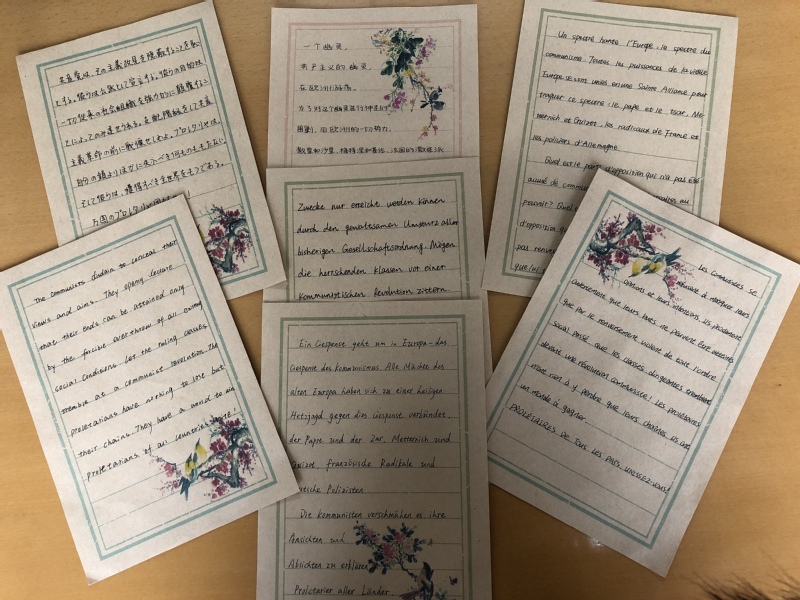 共産党は、その主義政見を隠蔽することを恥
とする。彼らは公然として宣言する。彼らの目的は
一切従来の社会組織を強力的に転覆する
ことによってのみ達せられる。支配階級をして共産
主義革命の前に戦慄せしめよ。プロレタリヤは、
自分の鎖よりほかに失ふべき何ものももたない。
そして彼らは、獲得すべき全世界をもつてゐる。
万国のプロレタリヤ
一个幽灵,
共产主义的幽灵,
在欧洲游荡。
为了对这个幽灵进行神圣的
围剿,旧欧洲的一切势力,
教皇和沙皇、梅特涅和基佐、法国的激进派
Un spectre hante l'Europe: le spectre du
communisme. Toutes les puissances de la vieille
Europe se sont unies en une Sainte Alliance pour
traquer ce spectre: le pape et le tsar, Me-
tternich et Guizot, les radicaux de France et
les policiers d'Allemagne.
Quel est le parti d'opposition qui n'a pas été
accusé de commu
pouvoir? Quel
d'opposition q
pas renv
Zwecke nur erreicht werden können
durch den gewaltsamen Umsturz aller
bisherigen Gesellschaftsordnung. Mögen
die herrschenden Klassen vor einer
Kommunistischen Revolution zittern
The communists disdain to conceal their
views and aims. They openly declare
that their ends can be attained only
by the forcible overthrow of all existing
social conditions. Let the ruling classes
tremble at a communist revolution. The
proletarians have nothing to lose but
their chains. They have a world to win
Proletarians of all countries, unite!
Ein Gespenst geht um in Europa-das
Gespenst des Kommunismus. Alle Mächte des
alten Europa haben sich zu einer heiligen
Hetzjagd gegen dies Gespenst verbündet,
der Papst und der Zar, Metternich und
Guizot, französische Radikale und
deutsche Polizisten
Die Kommunisten verschmähen es, ihre
Ansichten und
Absichten zu erklären
Proletarier aller Länder
Les Communistes se
opinions et leurs intentions. Ils proclament
ouvertement que leurs buts ne peuvent être atteints
que par le renversement violent de tout l'ordre
social passé. Que les classes dirigeantes tremblent
devant une révolution communiste! Les prolétaires
n'ont rien à y perdre que leurs chaînes. Ils ont
un monde à gagner
PROLÉTAIRES DE TOUS LES PAYS, UNISSEZ-VOUS!